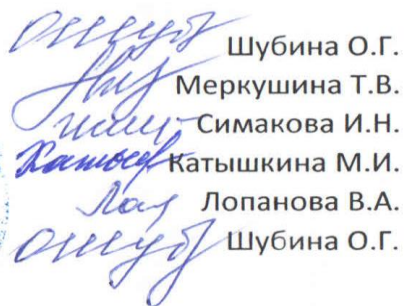 Шубина О.Г.
Меркушина Т.В.
Симакова И.Н.
Катышкина М.И.
Лопанова В.А.
Шубина О.Г.